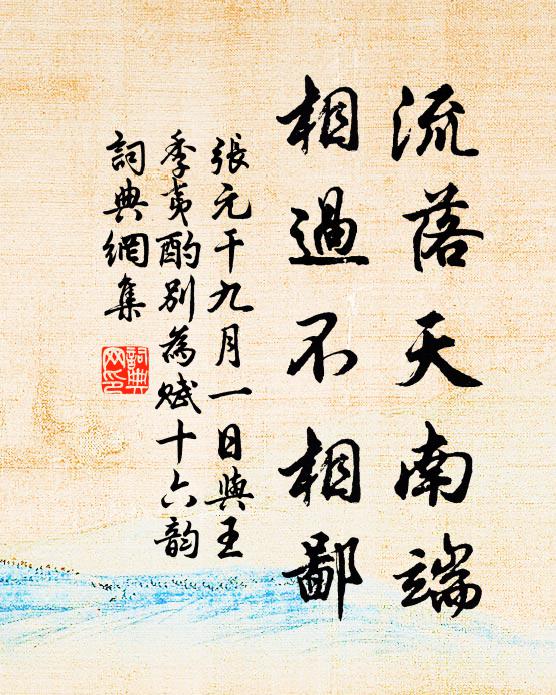 流落天南端
相過不相鄙
張元干九月一日與王
季夷酌別為賦十六韵
詞典網集
詞典
网印